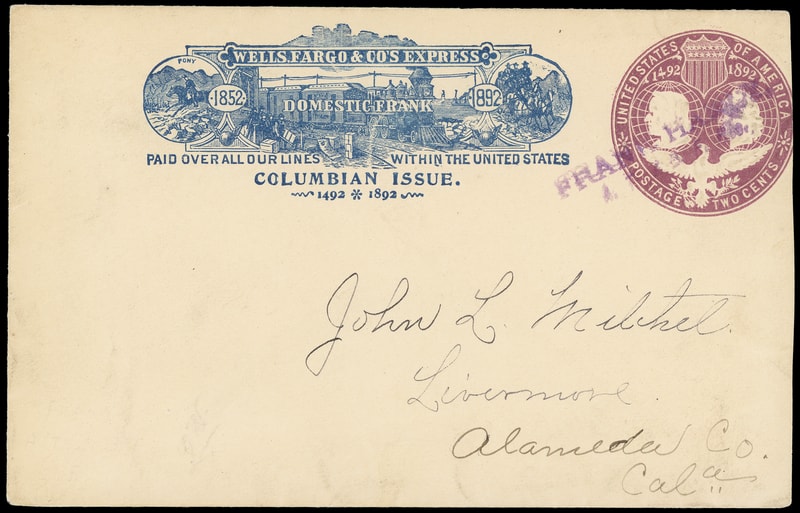 WELLS, FARGO & CO'S EXPRESS
PONY
1852
DOMESTIC FRANK
1892
PAID OVER ALL OUR LINES WITHIN THE UNITED STATES
COLUMBIAN ISSUE.
1492 1892
UNITED STATES OF AMERICA
1492 1892
POSTAGE TWO CENTS
John L. Mitchel.
Livermore
Alameda Co.
Cala